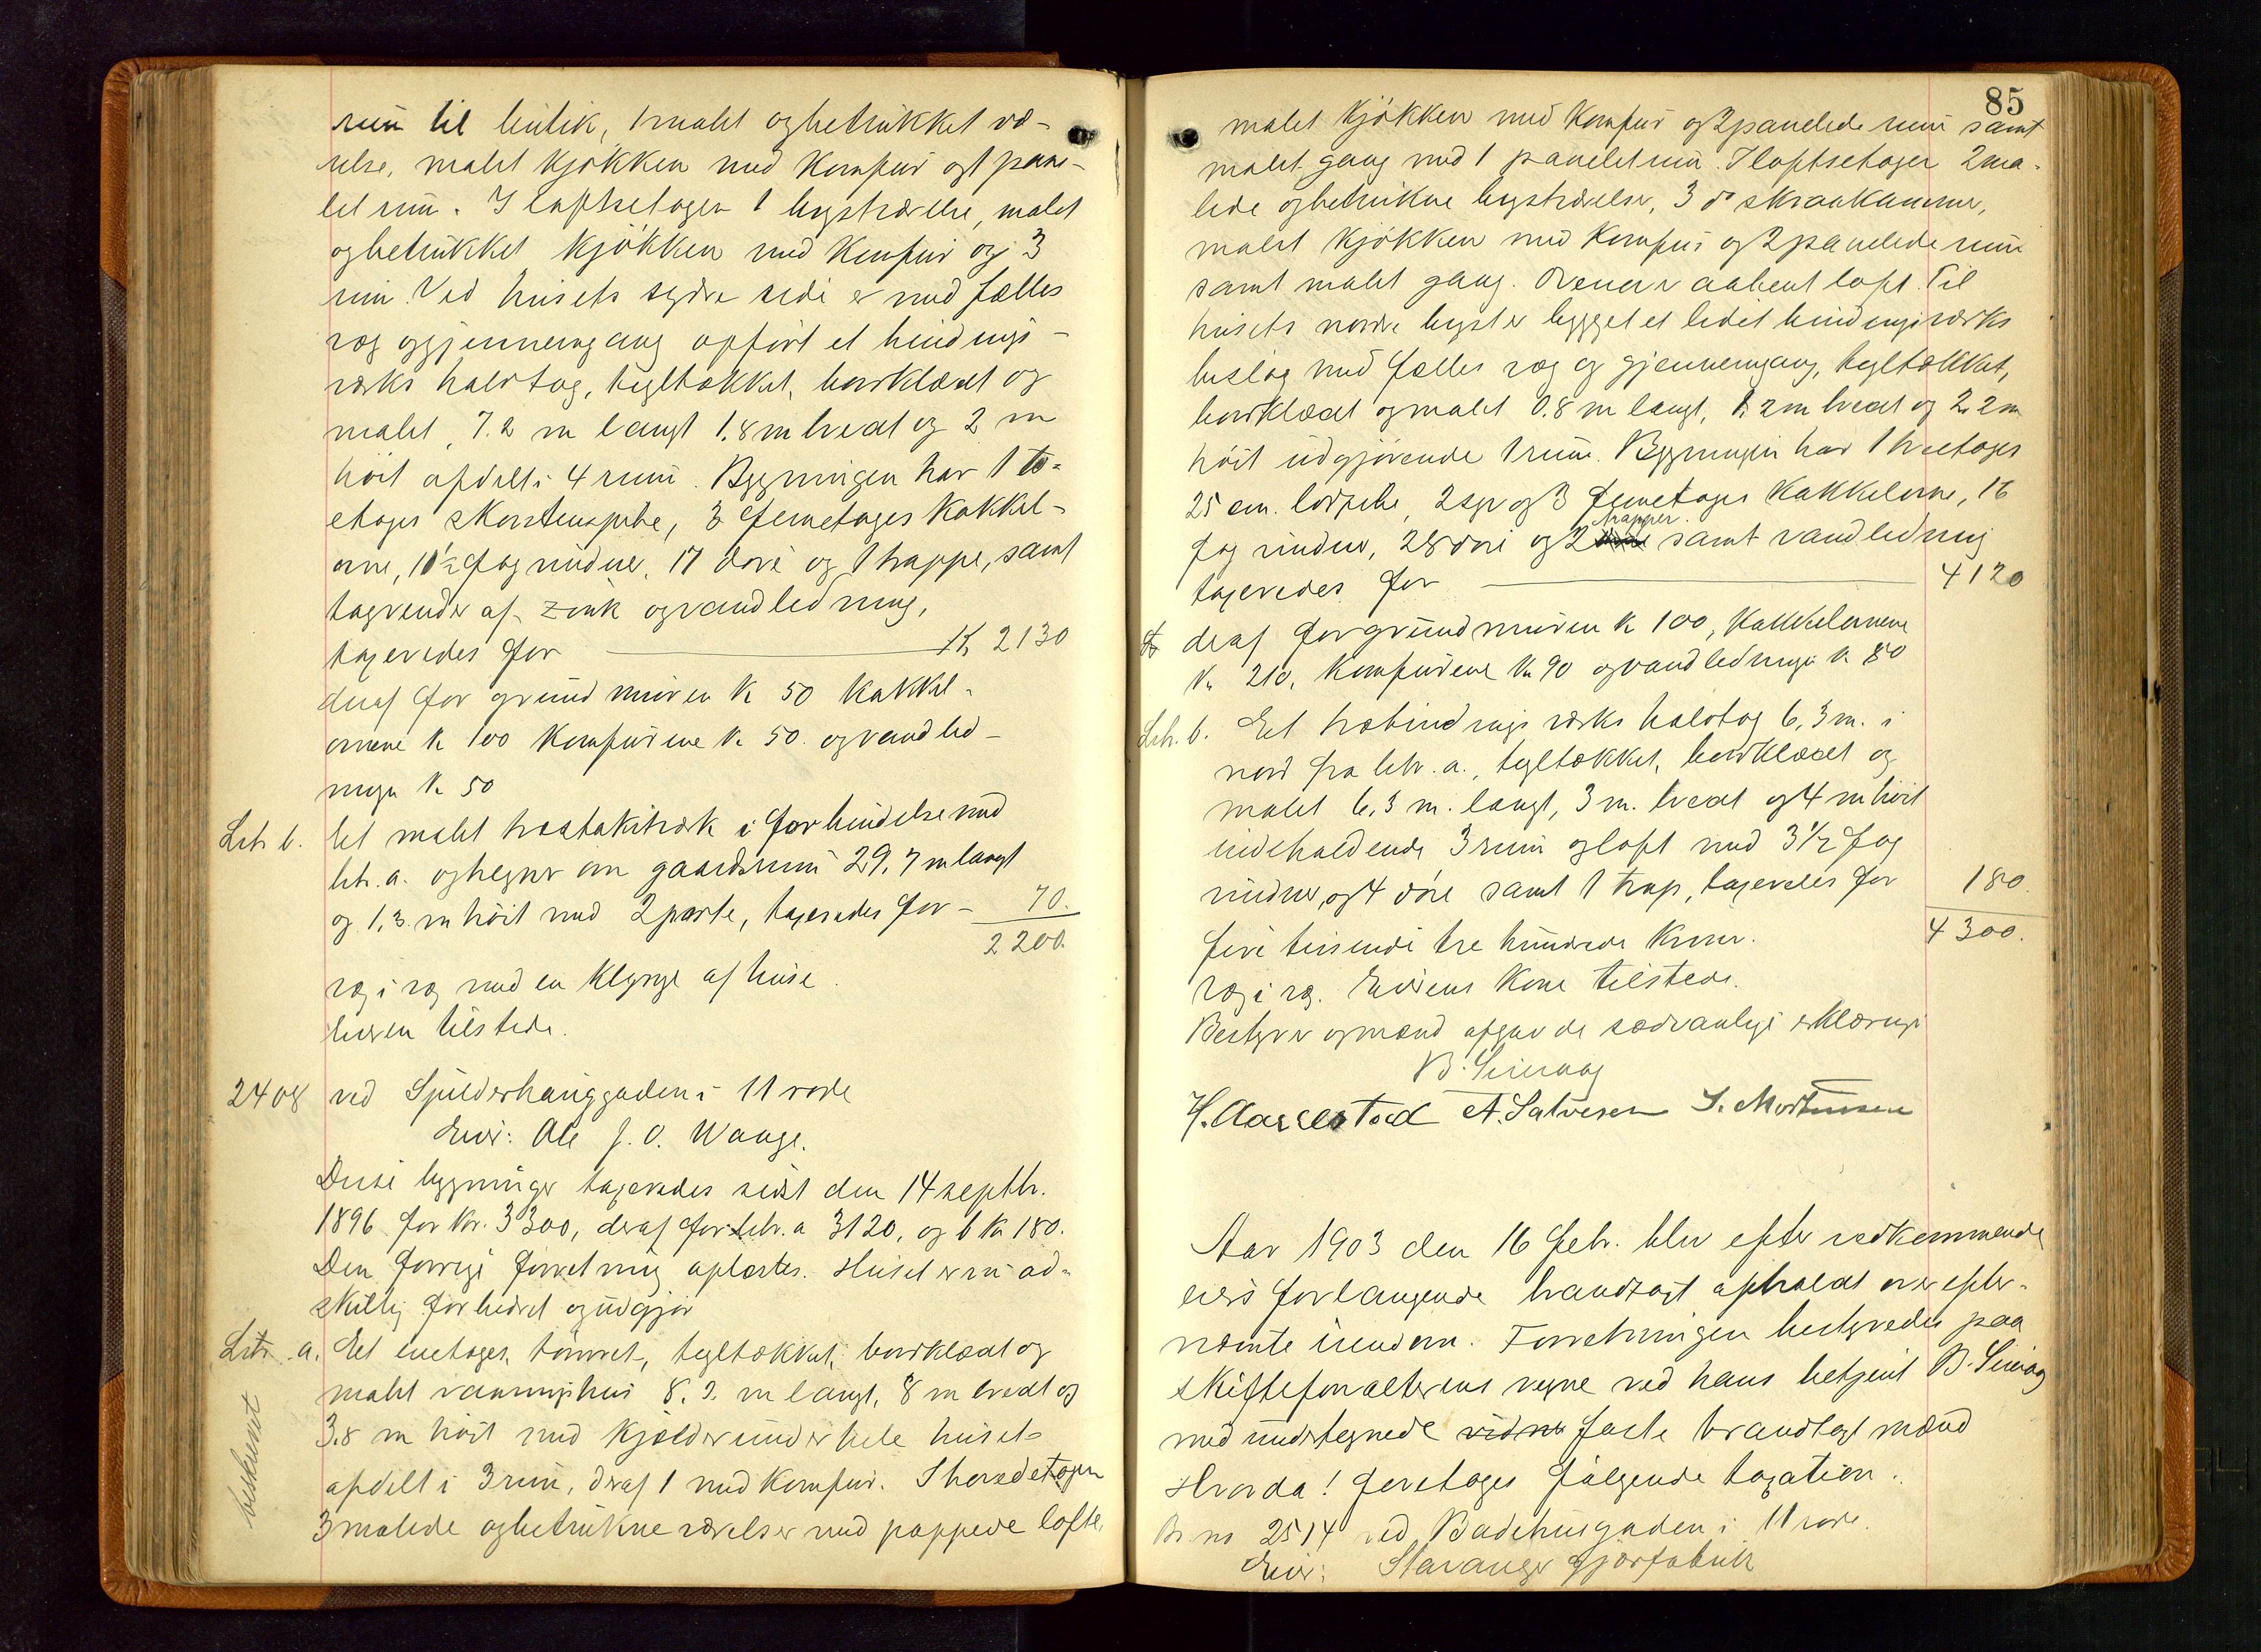 rum til butik, 1 malet og betrukket væ-
relse, malet kjøkken med Komfur og 1 pane-
let rum. I loftsetagen 1 kvistværelse, malet
og betrukket kjøkken med Komfur og 3
rum. Ved husets søndre side er med fælles
væg og gjennemgang opført et bindings-
værks halvtag, tegltækket, bordklædt og
malet, 7.2 m langt 1.8 m bredt og 2 m
høit afdelt i 4 rum. Bygningen har 1 to-
etages skorstenspibe, 3 femetages Kakkel-
ovne, 11½ fag vinduer, 17 døre og 1 trappe, samt
tagrender af zink og vandledning,
taxeredes for K 2130
deraf for grundmuren K 50 Kakkel-
ovnene K 100 Komfurene K 50. og vandled-
ningen K 50
Litr b. Et malet træstakitværk i forbindelse med
litr. a. og hegner om gaardsrum 29,7 m langt
og 1,3 m høit med 2 porte, taxeredes for - 70.
2200.
væg i væg med en Klynge af huse.
Eieren tilstede.
2408 ved Spilderhauggaden i 11 rode
Eier: Ole J. O. Waage.
Disse bygninger taxeredes sidst den 14 septbr.
1896 for Kr. 3300, deraf for litr. a 3120, og b Kr 180.
Den forrige forretning oplæstes. Huset er nu ad-
skillig forbedret og udgjør
Litr. a. Et enetages, tømret, tegltækket, bordklædt og
malet vaaningshus 8.2 m langt, 8 m bredt og
3.8 m høit med Kjelder under hele huset
afdelt i 3 rum, deraf 1 med Komfur. I hovedetagen
3 malede og betrukne værelser med pappede lofte,
beskrevet
85
malet Kjøkken med Komfur og 2 panelede rum samt
malet gang med 1 panelet rum. I loftsetagen 2 ma-
lede og betrukne kvistværelser, 3 do skraakamre,
malet Kjøkken med Komfur og 2 panelede rum
samt malet gang. Ovenover aabent loft. Til
husets nordre kvist er bygget et lidet bindingsværks
bislag med fælles væg og gjennemgang, tegltækket,
bordklædt og malet 0.8 m langt, 1.2 m bredt og 2,2 m
høit udgjørende 1 rum. Bygningen har 1 treetages
25 cm. pibe, 2 og 3 femetages Kakkelovne, 16
fag vinduer, 28 døre og 2 trapper samt vandledning
taxeredes for 4120
deraf for grundmuren K 100, Kakkelovnene
K. 210, Komfurene K. 90 og vandledningen K 80
Litr. b. Et træbindingsværks halvtag 6,3 m. i
nord fra litr. a., tegltækket, bordklædt og
malet 6,3 m. langt, 3 m. bredt og 4 m høit
indeholdende 3 rum og loft med 3½ fag
vinduer, og 4 døre samt 1 trap, taxeredes for 180.
fire tusende tre hundrede Kroner. 4300.
Væg i væg. Eierens Kone tilstede.
Bestyrer og mænd afgav de sædvanlige erklæringer
B. Simnag
H. Aarrestad A. Salvesen S. Mortensen
Aar 1903 den 16 febr. blev efter vedkommende
eiers forlangende brandtaxt afholdt over efter-
nævnte eiendom. Forretningen bestyredes paa
skifteforvalterens vegne ved hans betjent B. Simnag
med undertegnede faste brandtaxtmænd
Hvorda! foretoges følgende taxation.
Br no 2514 ved Badehusgaden i 11 rode.
Eier: Stavanger Gjærfabrik